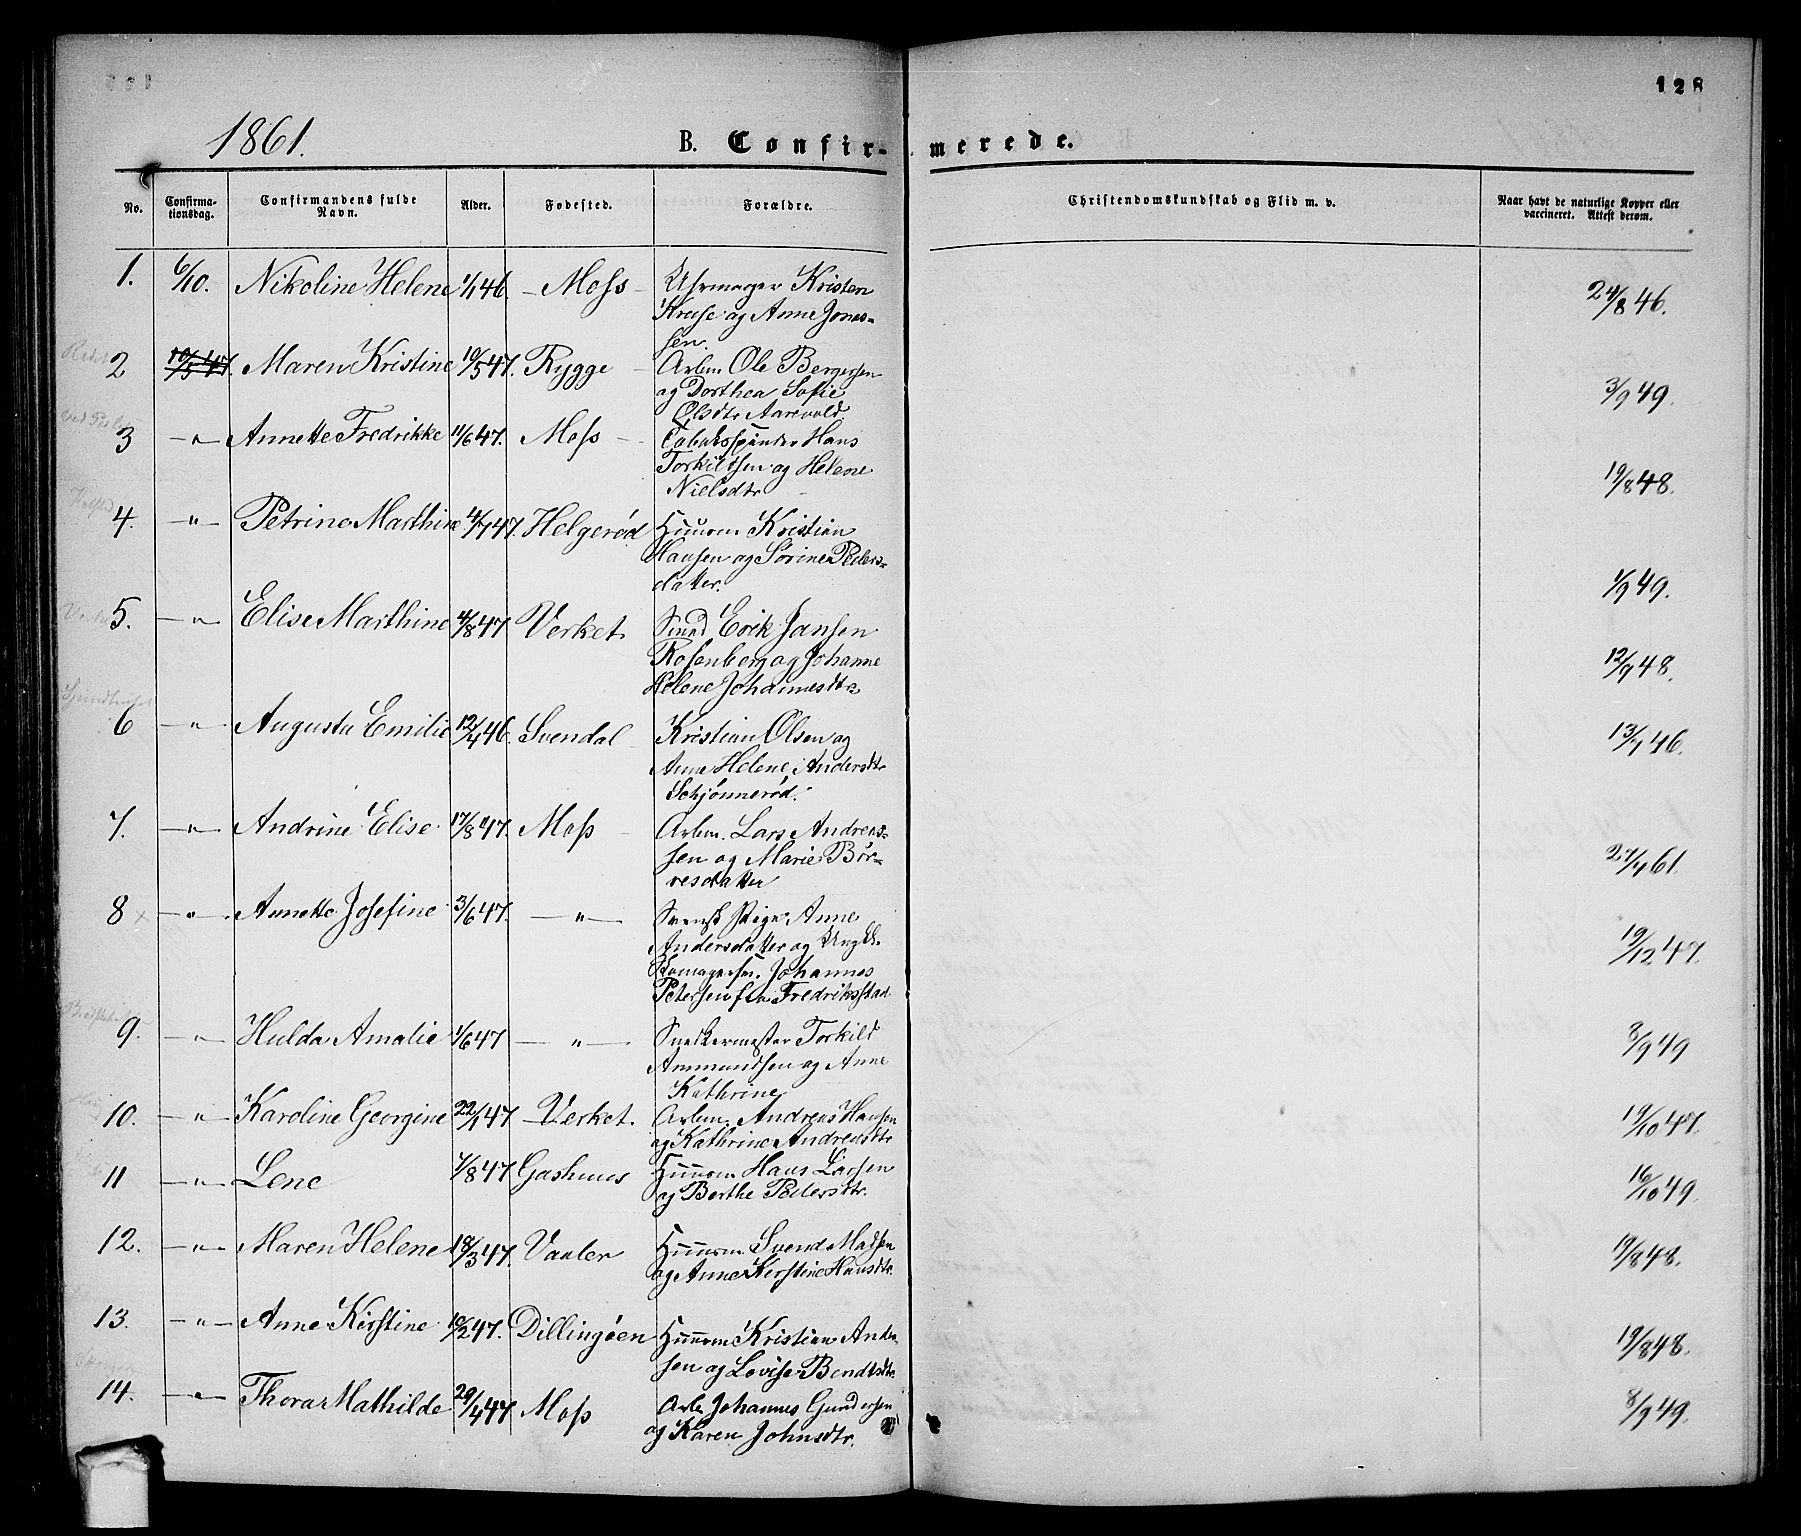 128
1861.
B. Confir-merede.
No. Confirma-tionsdag. Confirmandens fulde Navn. Alder. Fødested. Forældre. Christendomskundskab og Flid m. v. Naar havt de naturlige Kopper eller vaccineret. Attest derom.
1. 6/10. Nikoline Helene 1/1 46. - Moss - Uhrmager Kristen 24/8 46.
Kruse og Anne Jones-
sen.
2 10/5 47. Maren Kristine 10/5 47. Rygge - Arbm. Ole Bergersen 3/9 49.
og Dorthea Sofie
Olsdtr Aarevold.
3 -"- Annette Fredrikke 11/6 47. Moss - Tobakspinder Hans 19/8 48.
Torkildsen og Helene
Nielsdtr
4. -"- Petrine Marthine 4/7 47. Helgerød Huusm Kristian 1/9 49.
Hansen og Sørine Peders-
datter.
5. -"- Elise Marthine 4/8 47 Verket. Smed Erik Jansen 12/9 48.
Rosenberg og Johanne
Helene Johannesdtr
6 -"- Augusta Emilie 12/4 46. Svendal - Kristian Olsen og 13/7 46.
Anne Helene Andersdtr
Schjønnerød.
7. -"- Andrine Elise 17/8 47. Moss - Arbm. Lars Andreas- 27/7 61.
sen og Marie Bør-
resdatter
8 -"- Annette Josefine 3/6 47. -"- Svensk Pige Anne 19/12 47.
Andersdatter og Ungk.
Johannes
Petersen fra Fredriksstad
9. -"- Hulda Amalie 1/6 47 -"- Snedkermester Torkild 8/9 49
Ammundsen og Anne
Kathrine
10. -"- Karoline Georgine 22/1 47 - Verket. Arbm. Andreas Hansen 19/10 47.
og Kathrine Andreasdtr
11 -"- Lene 7/8 47 Gashuus Huusm Hans Larsen 16/10 49.
og Berthe Pedersdtr.
12. -"- Maren Helene 18/3 47. Vaaler Huusm Svend Madsen 19/8 48.
og Anne Kerstine Hansdtr.
13. -"- Anne Kirstine 10/2 47. Dillingøen Huusm Kristian Ander- 19/8 48.
sen og Lovise Bendtsdtr.
14. -"- Thora Mathilde 29/4 47 Moss Arb. Johannes Gundersen 8/9 49.
og Karen Johnsdtr.